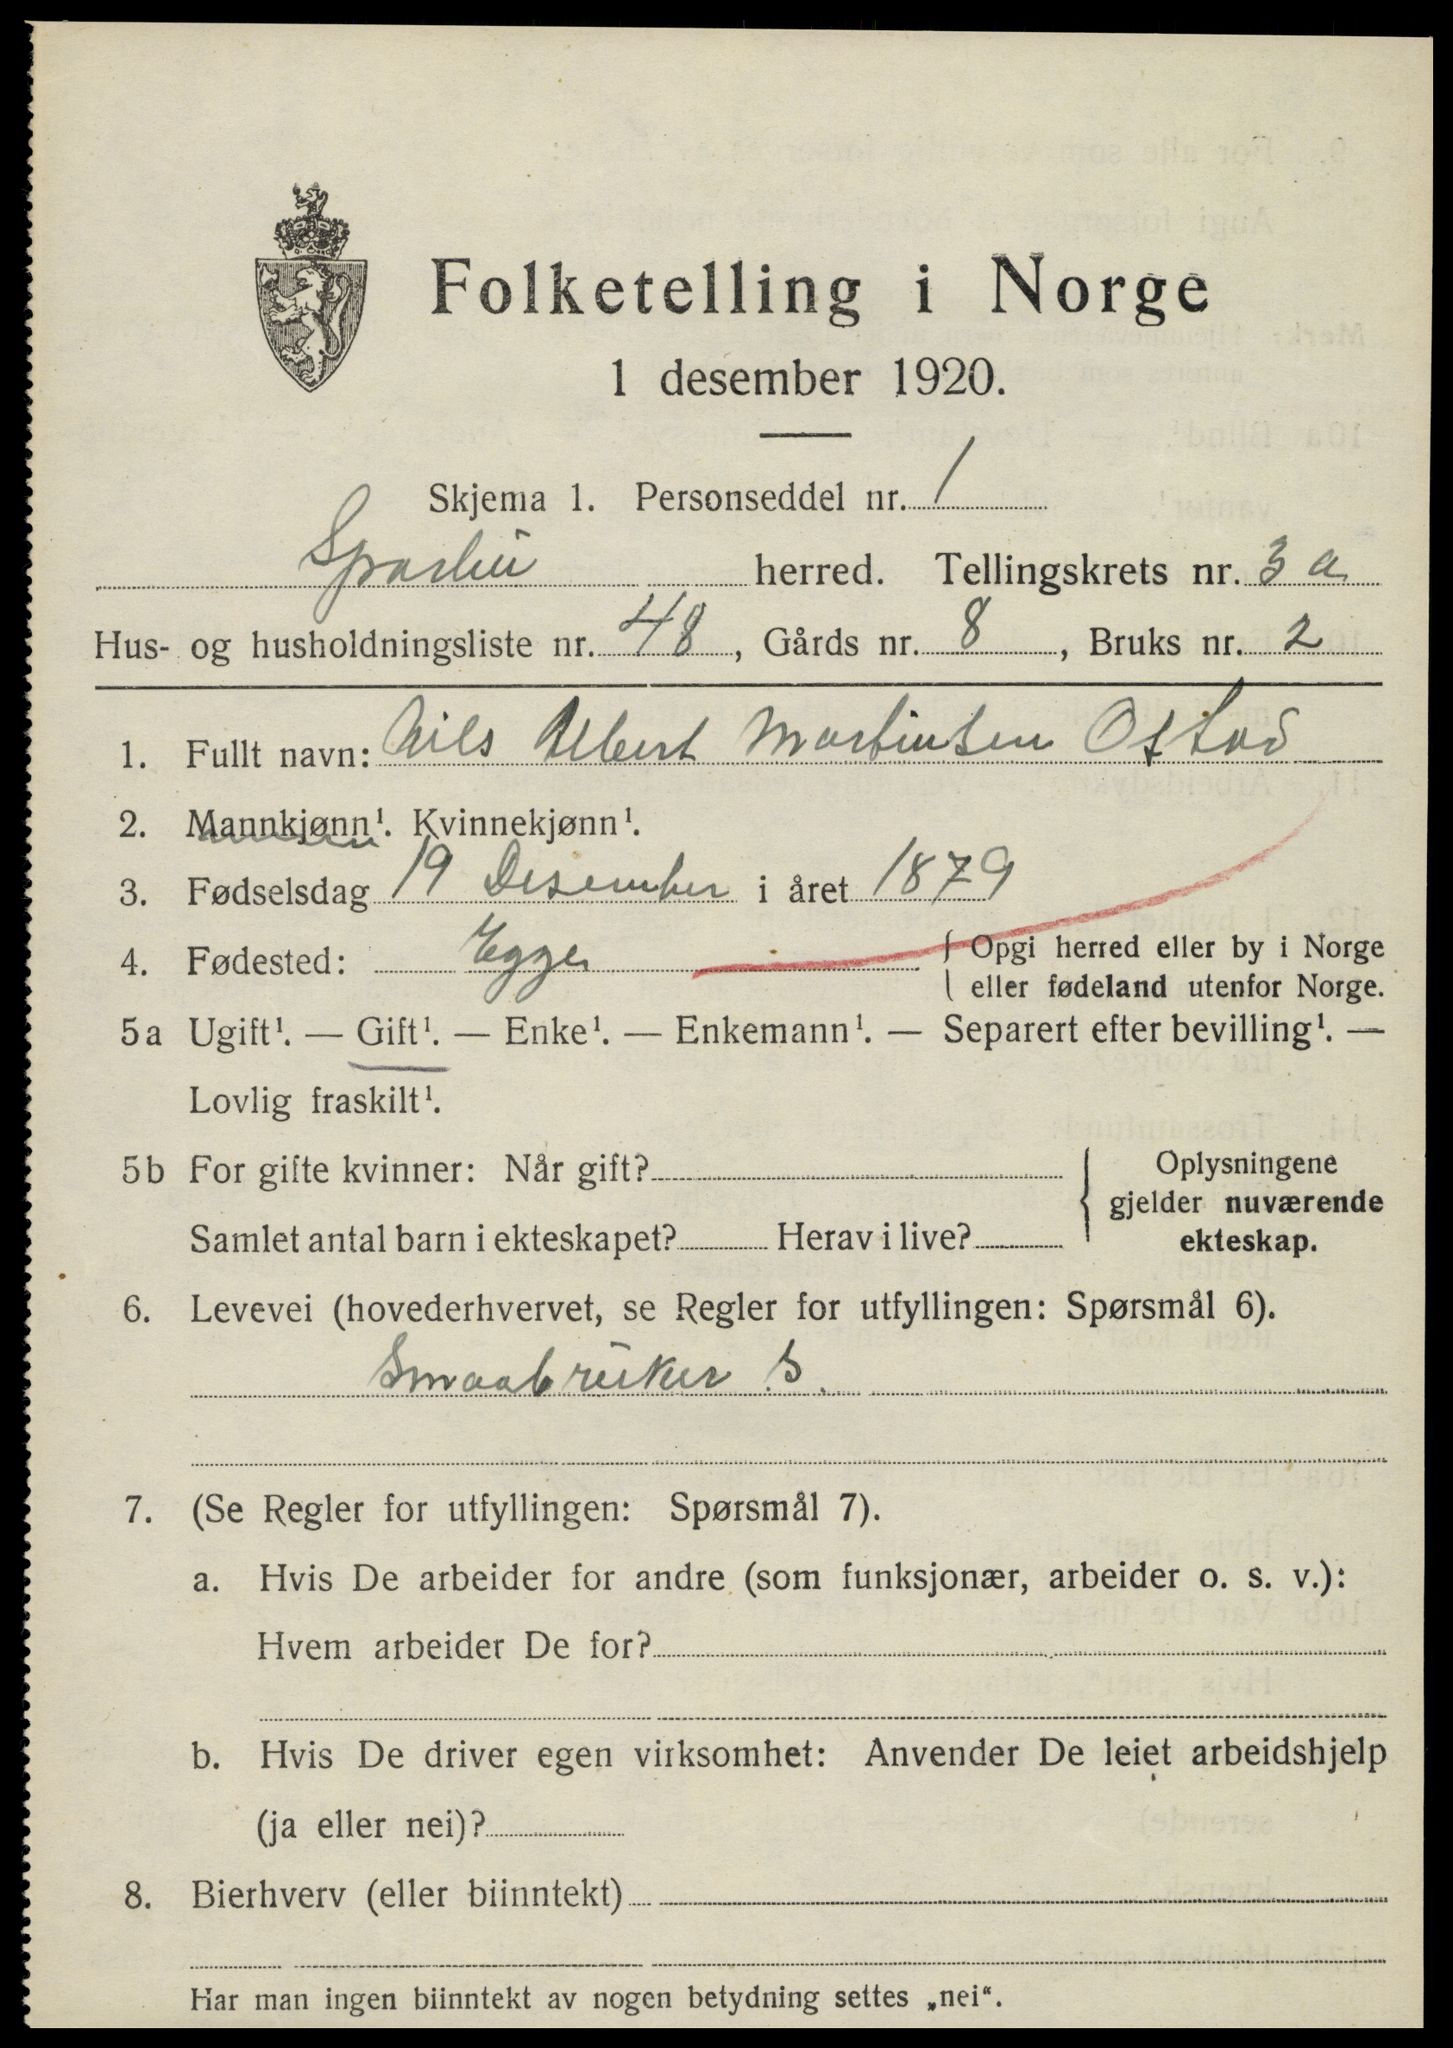 Folketelling i Norge
1 desember 1920.
Skjema 1. Personseddel nr. 1
Sparbu herred. Tellingskrets nr. 3 a
Hus- og husholdningsliste nr. 48, Gårds nr. 8, Bruks nr. 2
1. Fullt navn: Nils Albert Martinsen Østad
2. Mannkjønn¹. Kvinnekjønn¹.
3. Fødselsdag 19 Desember i året 1879
4. Fødested: Egge { Opgi herred eller by i Norge
eller fødeland utenfor Norge.
5a Ugift¹. — Gift¹. — Enke¹. — Enkemann¹. — Separert efter bevilling¹. —
Lovlig fraskilt¹.
5b For gifte kvinner: Når gift?
Samlet antal barn i ekteskapet? Herav i live?
Oplysningene
gjelder nuværende
ekteskap.
6. Levevei (hovederhvervet, se Regler for utfyllingen: Spørsmål 6).
Smaabruker S.
7. (Se Regler for utfyllingen: Spørsmål 7).
a. Hvis De arbeider for andre (som funksjonær, arbeider o. s. v.):
Hvem arbeider De for?
b. Hvis De driver egen virksomhet: Anvender De leiet arbeidshjelp
(ja eller nei)?
8. Bierhverv (eller biinntekt)
Har man ingen biinntekt av nogen betydning settes „nei“.